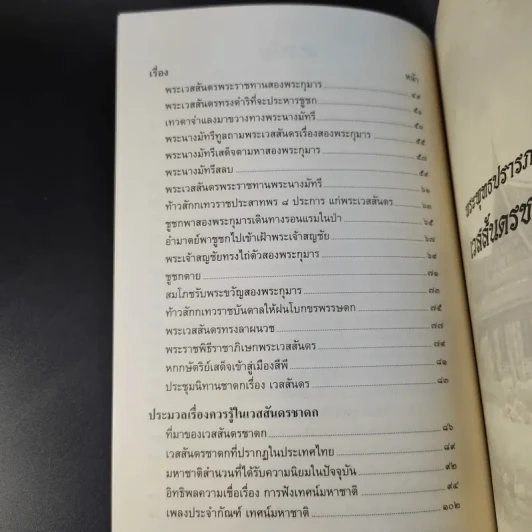 เรื่อง หน้า
พระเวสสันดรพระราชทานสองพระกุมาร ๔๘
พระเวสสันดรทรงดำริที่จะประหารชูชก ๕๑
เทวดาจำแลงมาขวางทางพระนางมัทรี ๕๓
พระนางมัทรีทูลถามพระเวสสันดรเรื่องสองพระกุมาร ๕๕
พระนางมัทรีเสด็จตามหาสองพระกุมาร ๕๗
พระนางมัทรีสลบ ๕๙
พระเวสสันดรพระราชทานพระนางมัทรี ๖๑
ท้าวสักกเทวราชประสาทพร ๘ ประการ แก่พระเวสสันดร ๖๓
ชูชกพาสองพระกุมารเดินทางรอนแรมในป่า ๖๕
อำมาตย์พาชูชกไปเข้าเฝ้าพระเจ้าสญชัย ๖๗
พระเจ้าสญชัยทรงไถ่ตัวสองพระกุมาร ๖๙
ชูชกตาย ๗๑
สมโภชรับพระขวัญสองพระกุมาร ๗๓
ท้าวสักกเทวราชบันดาลให้ฝนโบกขรพรรษตก ๗๕
พระเวสสันดรทรงลาผนวช ๗๗
พระราชพิธีราชาภิเษกพระเวสสันดร ๗๙
หกกษัตริย์เสด็จเข้าสู่เมืองสีพี ๘๑
ประชุมนิทานชาดกเรื่อง เวสสันดร ๘๓
ประมวลเรื่องควรรู้ในเวสสันดรชาดก
ที่มาของเวสสันดรชาดก ๘๖
เวสสันดรชาดกที่ปรากฏในประเทศไทย ๘๙
มหาชาติสำนวนที่ได้รับความนิยมในปัจจุบัน ๙๒
อิทธิพลความเชื่อเรื่อง การฟังเทศน์มหาชาติ ๙๔
เพลงประจำกัณฑ์ เทศน์มหาชาติ ๑๐๒
พระพุทธปรารภ
เวสสันดรชา